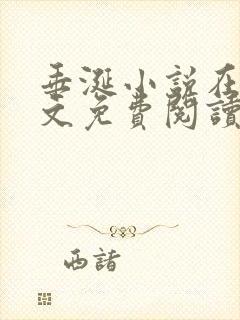 垂涎小说在
文免費閱讀
西諸